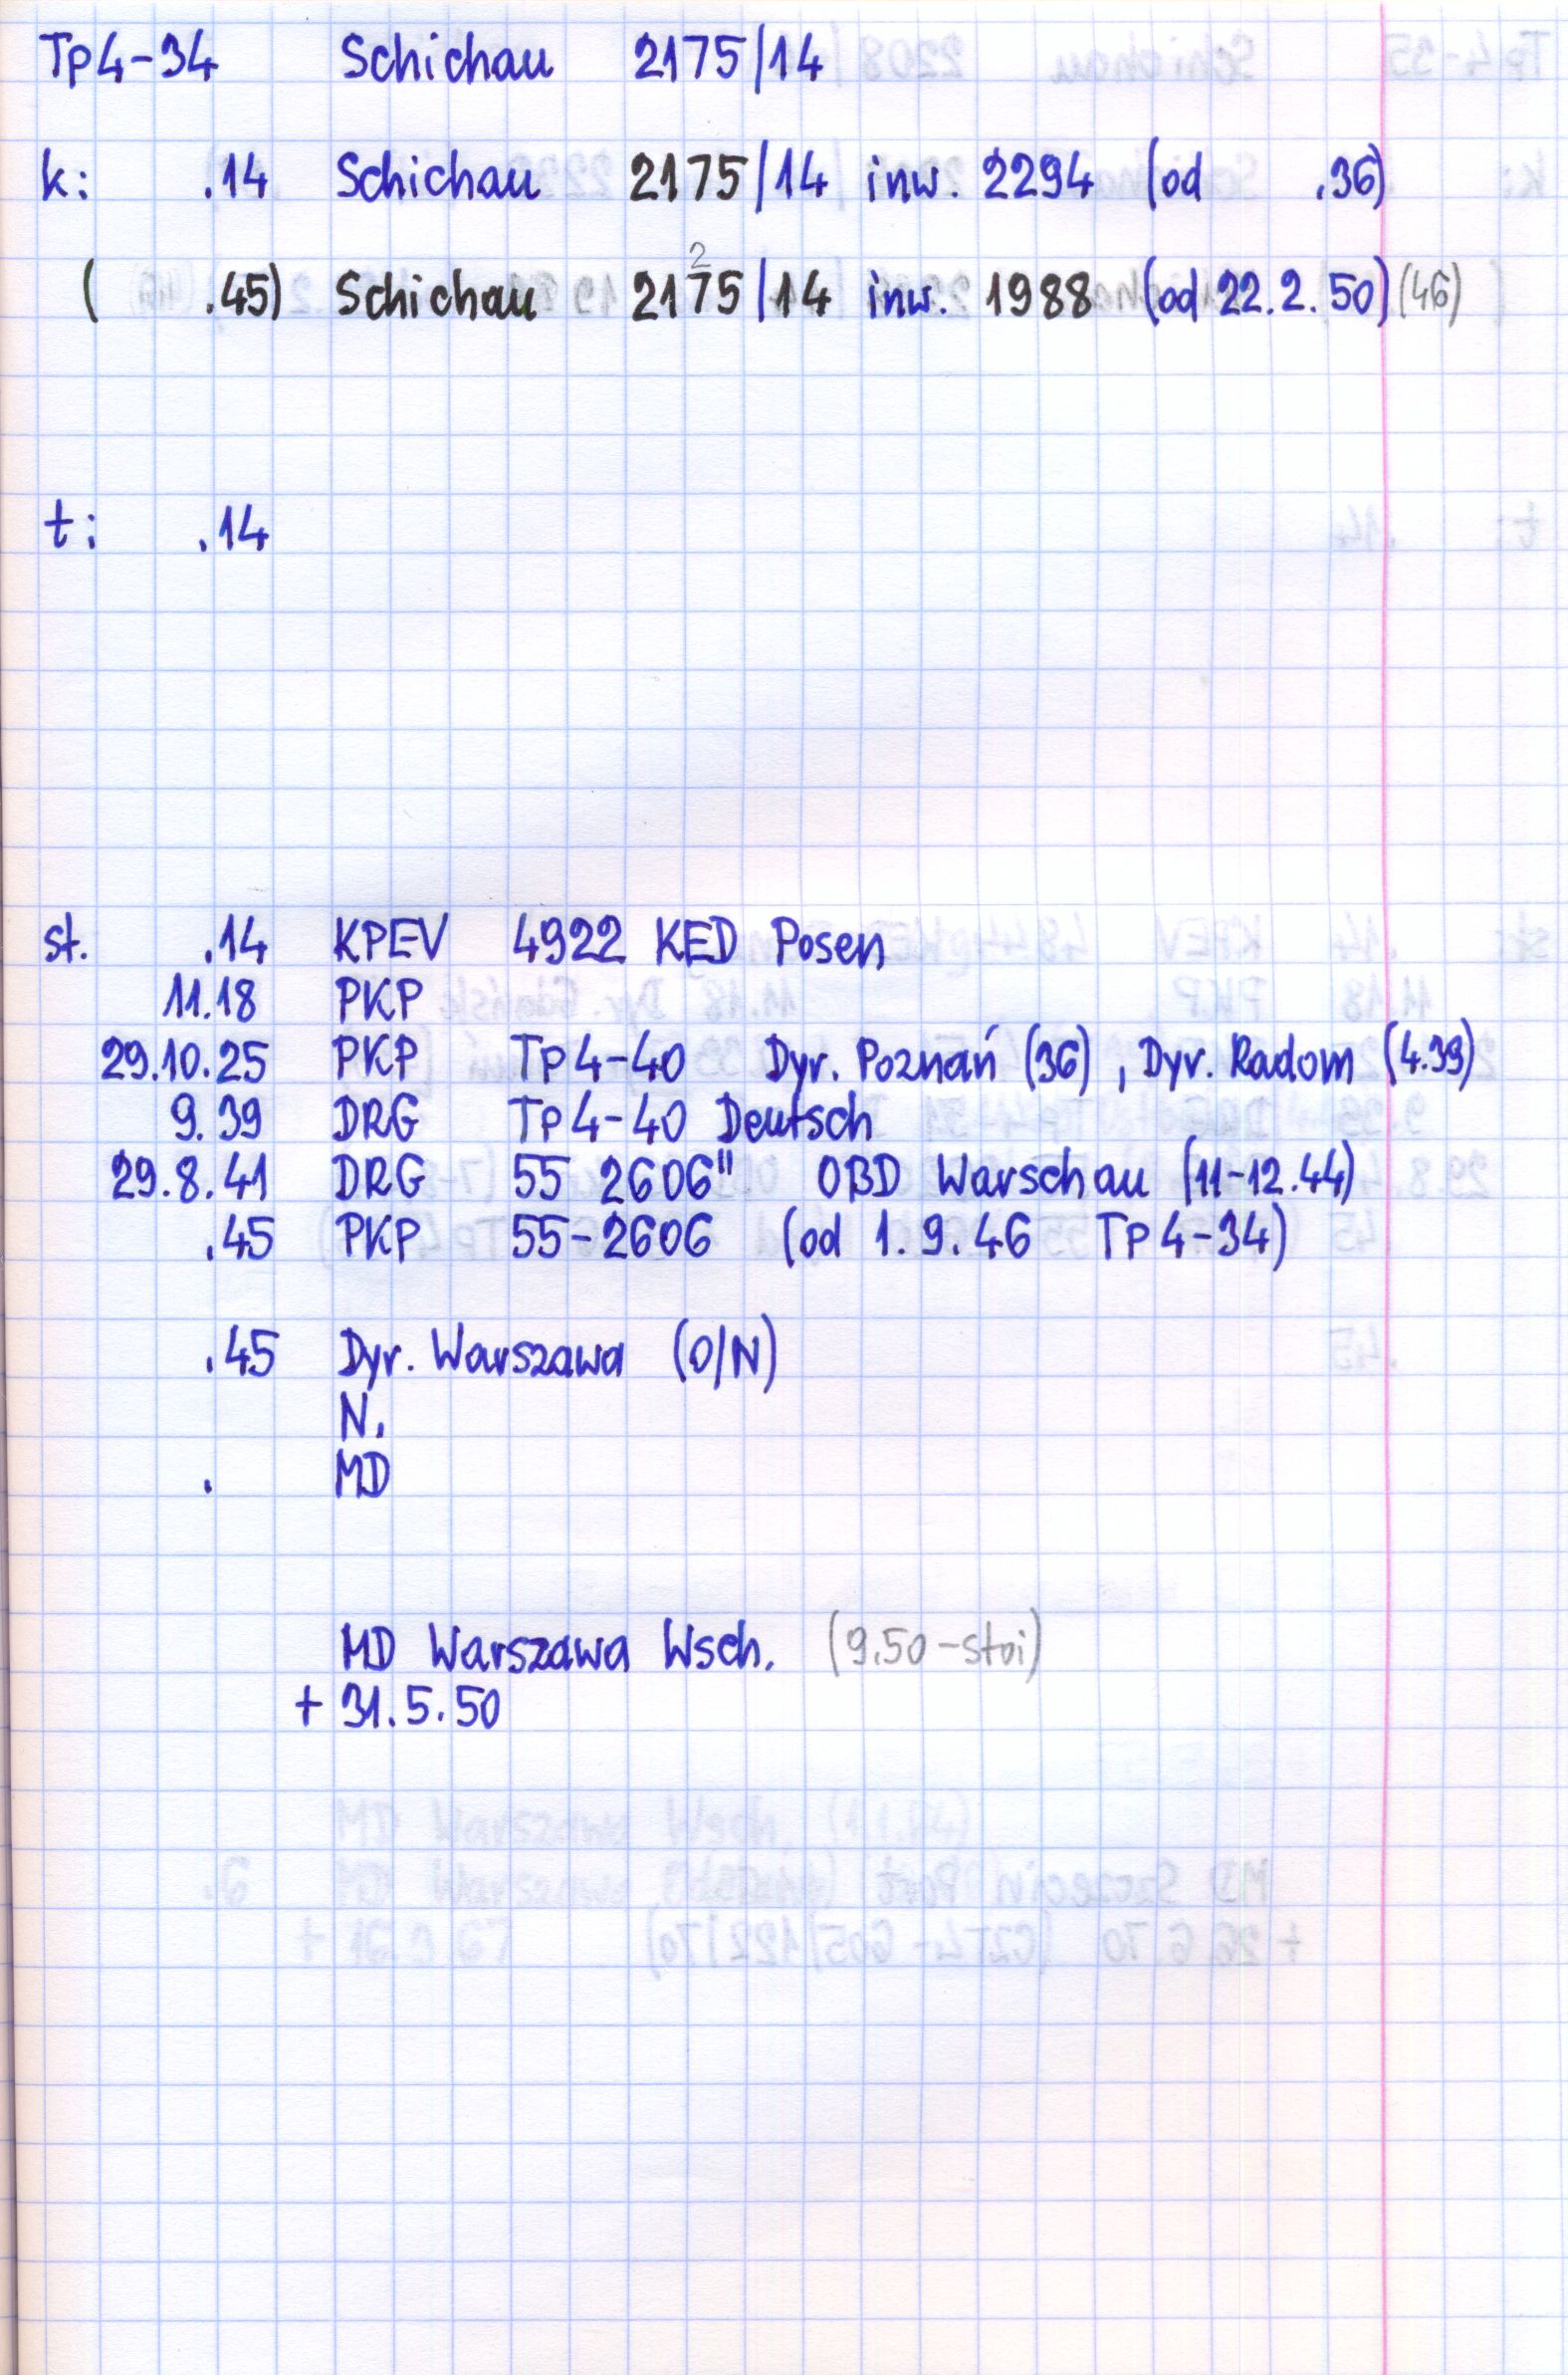 Tp4-34 Schichau 2175/14
k: .14 Schichau 2175/14 inw. 2294 (od .36)
2
( .45) Schichau 2175/14 inw. 1988 (od 22.2.50) (46)
t: .14
st. .14 KPEV 4922 KED Posen
11.18 PKP
29.10.25 PKP Tp4-40 Dyr. Poznań (36), Dyr. Radom (4.39)
9.39 DRG Tp4-40 Deutsch
29.8.41 DRG 55 2606" OBD Warschau (11-12.44)
.45 PKP 55-2606 (od 1.9.46 Tp4-34)
.45 Dyr. Warszawa (O/N)
N.
. MD
MD Warszawa Wsch. (9.50-stoi)
+ 31.5.50